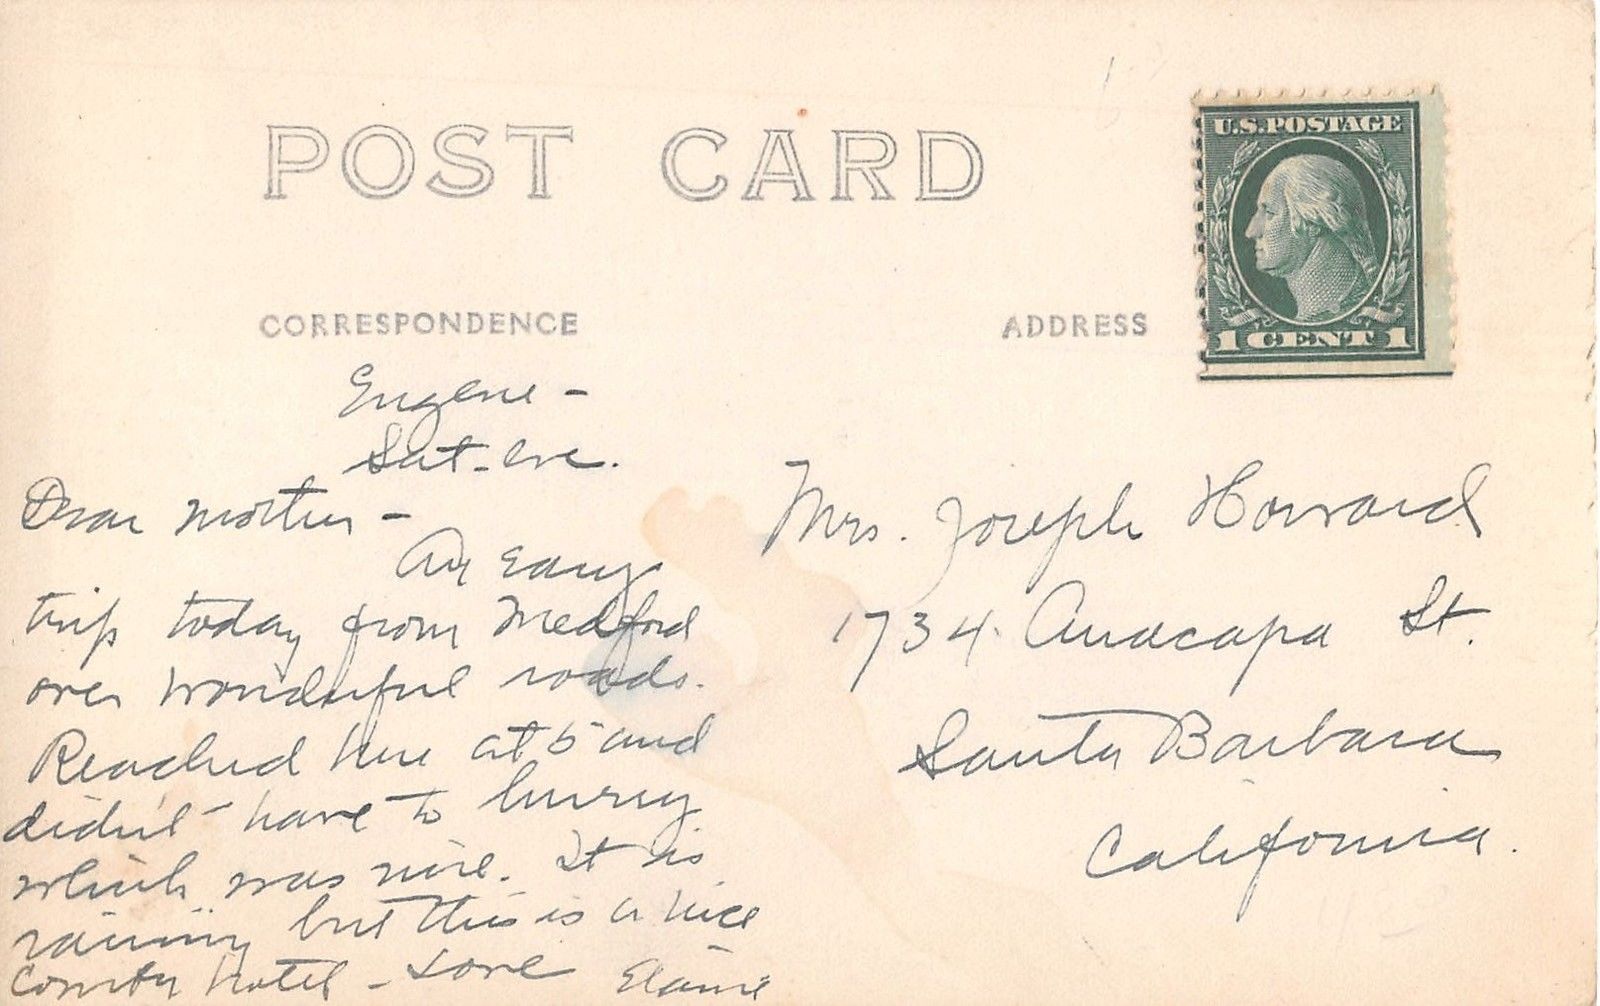 POST CARD
U.S. POSTAGE
1 CENT 1
CORRESPONDENCE
ADDRESS
Eugene -
Sat - eve.
Dear Mother -
An easy
trip today from Medford
over wonderful roads.
Reached here at 5 and
didn't have to hurry
which was nice. It is
raining but this is a nice
hotel - Love Elaine
Mrs. Joseph Howard
1734 Anacapa St.
Santa Barbara
California.